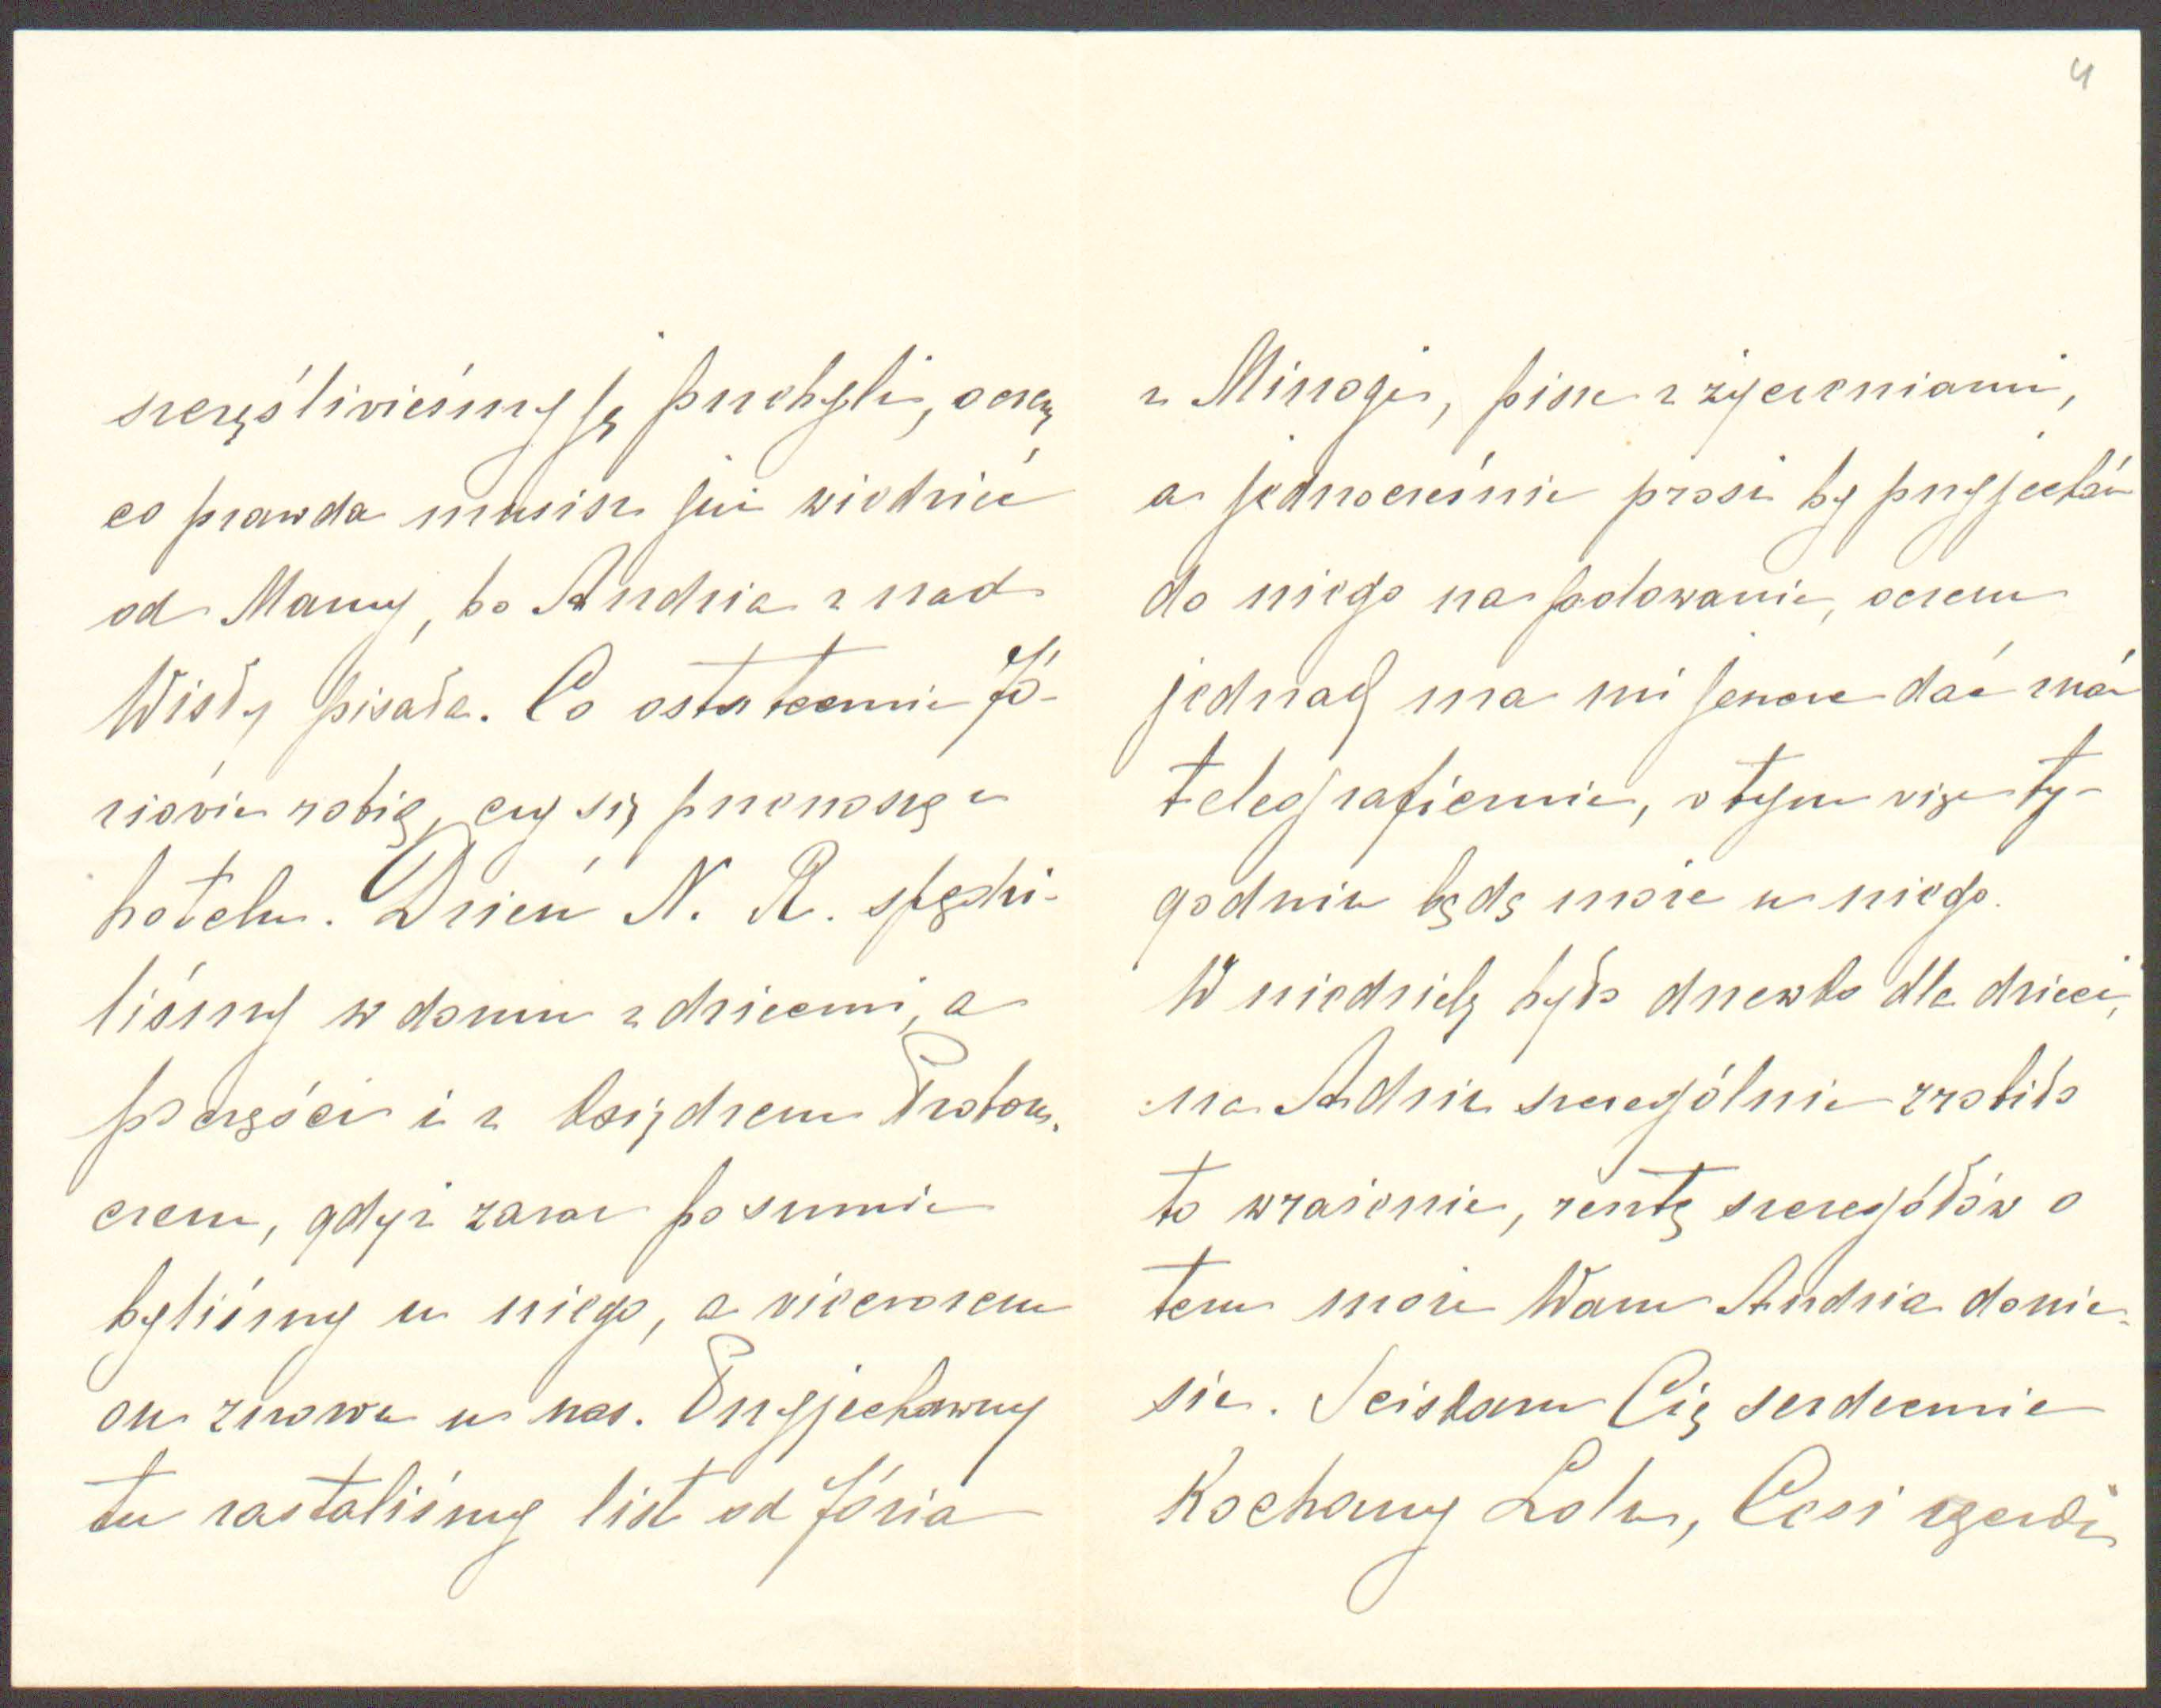 szczęśliwieśmy ją przebyli, o czem
co prawda musisz już wiedzieć
od Mamy, bo Andzia z nad
Wisły pisała. Co ostatecznie Jó-
ziowie robią, czy się przenoszą z
hotelu. Dzień N. R. spędzi-
liśmy w domu z dziećmi, a
po części i z księdzem Probosz-
czem, gdyż zaraz po sumie
byliśmy u niego, a wieczorem
on znowu u nas. Przyjechawszy
tu zastaliśmy list od Józia
4
z Minogi, pisze z życzeniami,
a jednocześnie prosi by przyjechać
do niego na polowanie, o czem
jednak ma mi jeszcze dać znać
telegraficznie, w tym więc ty-
godniu będę może u niego.
W niedzielę było drzewko dla dzieci,
na Adziu szczególnie zrobiło
to wrażenie, resztę szczegółów o
tem może Wam Andzia donie-
sie. Sciskam Cię serdecznie
Kochany Lolu, Cesi